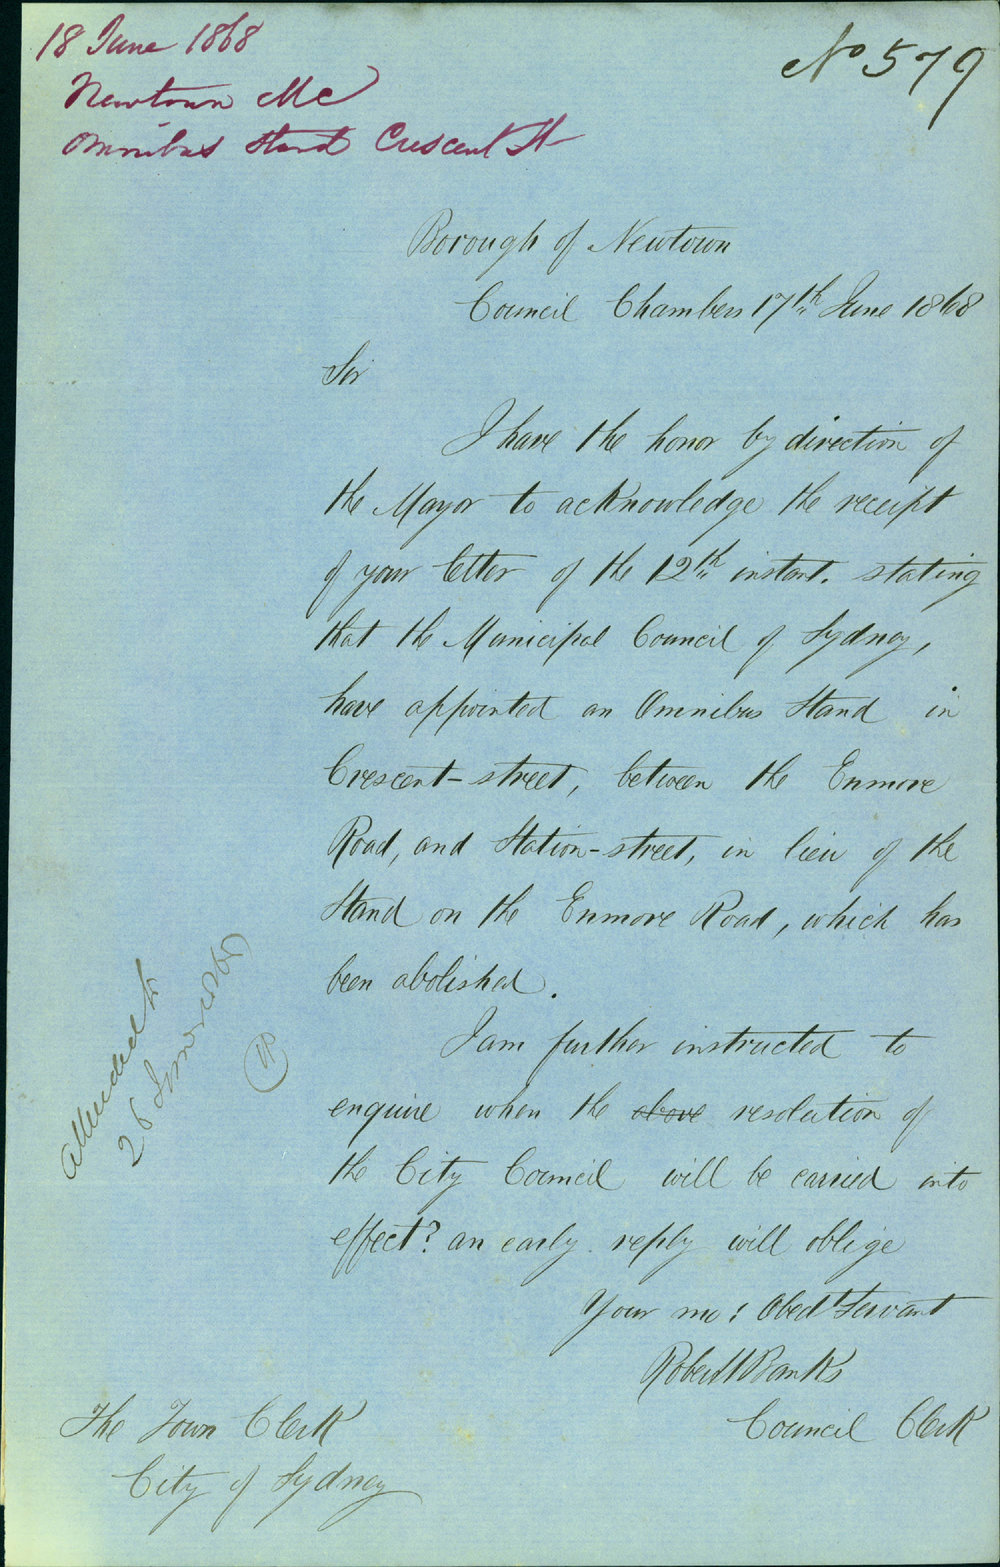 18 June 1868
Newtown MC
Omnibus Stand Crescent St
No 579
Borough of Newtown
Council Chambers 17th June 1868
Sir
I have the honor by direction of
the Mayor to acknowledge the receipt
of your letter of the 12th instant. stating
that the Municipal Council of Sydney,
have appointed an Omnibus Stand in
Crescent-street, between the Enmore
Road, and Station-street, in lieu of the
Stand on the Enmore Road, which has
been abolished.
I am further instructed to
enquire when the above resolution of
the City Council will be carried into
effect? an early reply will oblige
Your mo: Obedt Servant
Robert Banks
Council Clerk
The Town Clerk
City of Sydney
Attended to
26